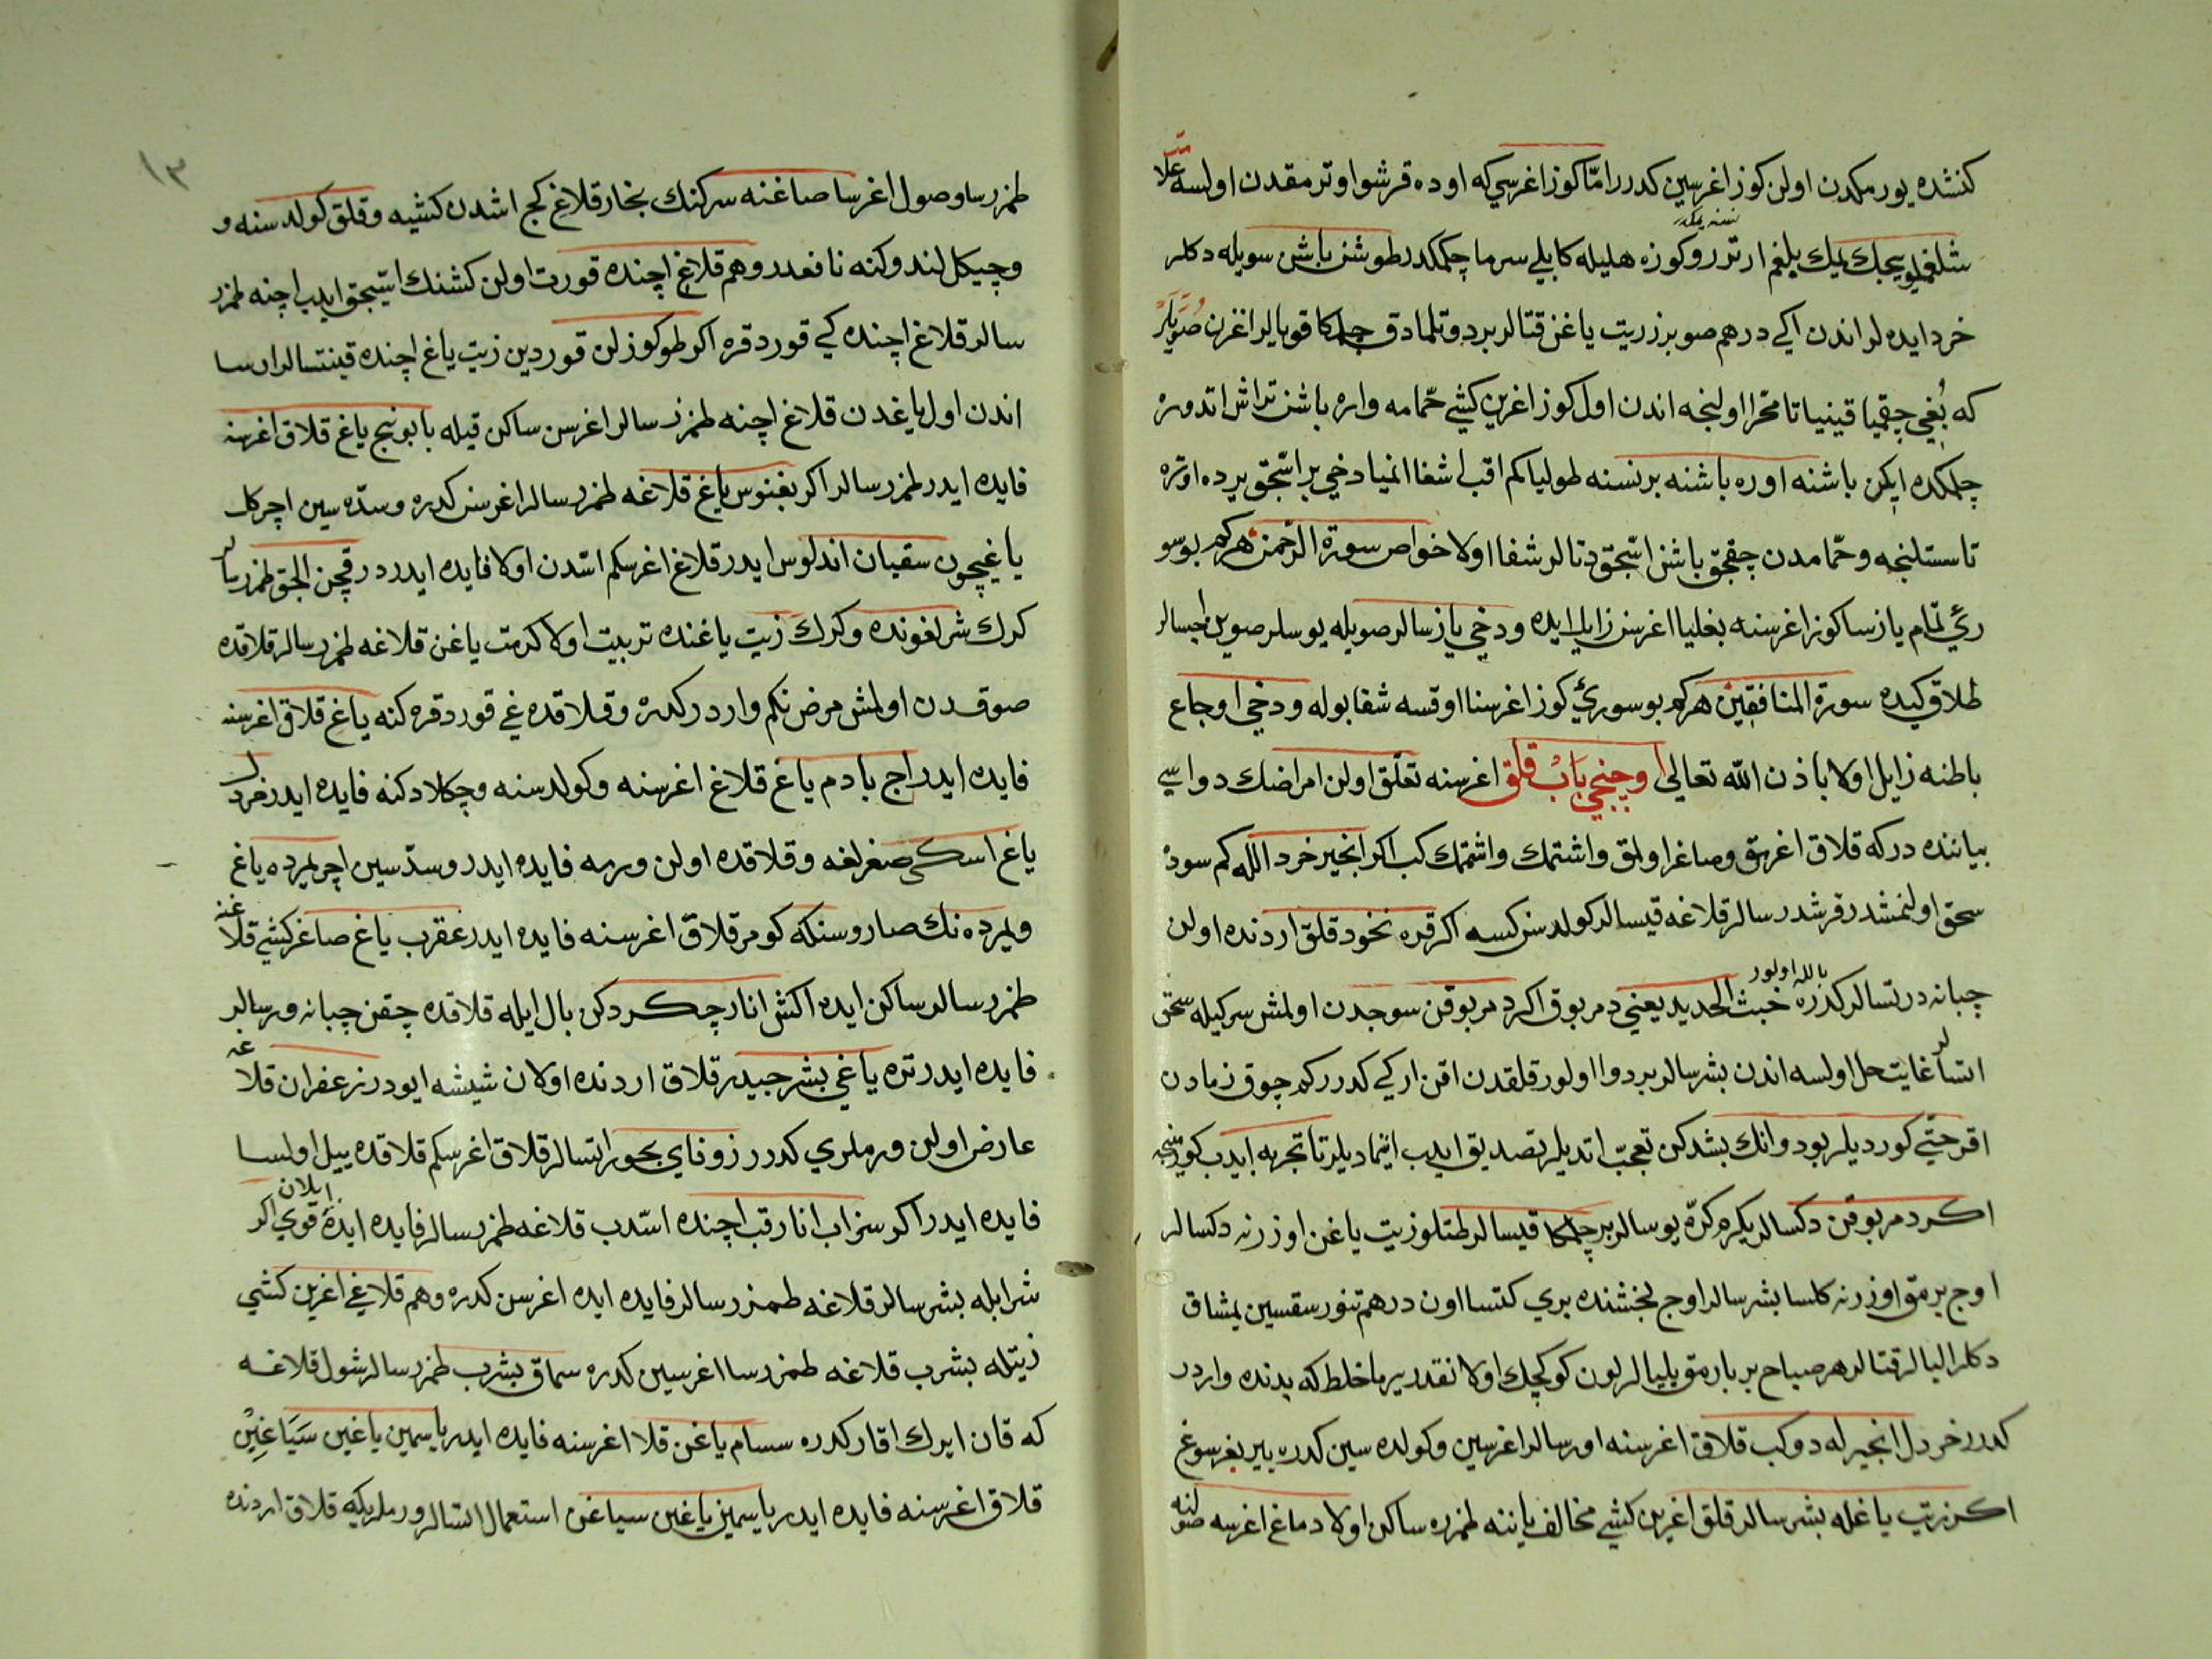 كنشده يورمكدن اولن كوز اغرسين كدرر امّا كوز اغرسي كه اوده قرشو اوترمقدن اولسه علا
شلغميلويجك يمك بلغم ارترر وكوزه هليله كابلي سرما چكمكدر طوشن باشن سويله دكلر
خرد ايده لر اندن اكي درهم صو برز زيت ياغن قتالر بر دوتلمادق چلمكا قويالر اغزن صويالر
كه بُغي چقميا قينيا تا محرا اولنجه اندن اول كوز اغرين كشي حمّامه واره باشن تراش اتدوره
چلمكده ايكن باشنه اوره باشنه بر نسنه طوليا كم اقب اشغا انميا دخي بر اسّجق يرده اوتره
تا سستلنجه وحمّامدن چقجق باشن اسّجق دتالر شفا اولا خواص سورة الرّحمن هركم بو سو
رئي تمّام يازسا كوز اغرسنه بغليا اغرسن زايل ايده ودخي يازسالر صويله يوسلر صوين اچسالر
طلاق كيده سورة المنافقين هركم بو سورئي كوز اغرسنا اوقسه شفا بوله ودخي اوجاع
باطنه زايل اولا باذن الله تعالى اوچنجي بَابْ قلق اغرسنه تعلّق اولن امراضك دواسي
بياننده دركه قلاق اغرمق وصاغر اولمق واشتمك واشتمك كب اكر انجير خرد الله كم سود
سحق اولنمشدر قرشدرسالر قلاغه قيسالر كولدسن كسه اكر قره نخود قلق اردنده اولن
چبانه درتسالر كدره خبث الحديد يعني دمر بوق اكر دمر بوقن سوجدن اولمش سركيله سحق
بالله اولور
اتسالر غايت حل اولسه اندن بشرسالر بر دوا اولور قلقدن اقن اركي كدرر كم چوق زمادن
اقر حتي كورديلر بو دوانك بشدكن تعجّب اتديلر تصديق ايدب اينماديلر تا تجربه ايدب كورنجه
اكر دمر بوقن دكسالر يكرم كرّه يوسالر بر چلمكا قيسالر طتلو زيت ياغن اوزرنه دكسالر
اوچ برمق اوزرنه كلسا بشرسالر اوچ بخشنده بري كتسا اون درهم تنور سقسين يمشاق
دكلر اليالر قتالر هر صباح بر بارمق يليالر لون كوكچك اولا نقدر يرما خلط كه بدنده واردر
كدرر خردل انجيرله دوكب قلاق اغرسنه اورسالر اغرسين وكولده سين كدره بير بغر سوغ
اكر زيت ياغله بشرسالر قلق اغرين كشي مخالف ياننه طمزره ساكن اولا دماغ اغرسه صولنه
١٣
طمزرسا وصول اغرسا صاغنه سركنك بخار قلاغ كج اشدن كشيه وقلق كولدسنه و
وچيكل لندوكنه نافعدر وهم قلاغ اچنده قورت اولن كشنك اسّيجق ايدب اچنه طمزر
سالر قلاغ اچنده كي قورد قره اكر طوكوزلن قوردين زيت ياغ اچنده قينتسالر ارسا
اندن اول ياغدن قلاغ اچنه طمزرسالر اغرسن ساكن قيله بابونج ياغ قلاق اغرسنه
فايده ايدر طمزرسالر اكر بغنوس ياغ قلاغه طمزرسالر اغرسن كدره وسدّه سين اچر كل
ياغيچون سقيان اندلوس ايدر قلاغ اغرسكم اسّدن اولا فايده ايدردر قچن الجق طمزرسالر
كرك شريفونده وكرك زيت ياغنده تربيت اولا كرمت ياغن قلاغه طمزرسالر قلاقده
صوقدن اولمش مرض نكم واردر كدره وقلاقده غي قورد قره كنه ياغ قلاق اغرسنه
فايده ايدر اج بادم ياغ قلاغ اغرسنه وكولدسنه وچكلادكنه فايده ايدر خردل
ياغ اسكى صغرلغه وقلاقده اولن ورمه فايده ايدر وسدّسين اچر يمرده ياغ
ويمرده نك صاروسنكه كومر قلاق اغرسنه فايده ايدر عقرب ياغ صاغر كشي قلاغنه
طمزرسالر ساكن ايده اكش انار چكردكن بال ايله قلاقده چقن چبانه ورسالر
فايده ايدر تره ياغي بشر جيدر قلاق اردنده اولان شيشه ايودر زعفران قلاغه
عارض اولن ورملري كدرر زوفاي بخور اتسالر قلاق اغرسكم قلاقده ييل اولسا
فايده ايدر اكر سزاب انار قب اچنده اسّدب قلاغه طمزرسالر فايده ايده قوي اكر
ايلان
شرابله بشرسالر قلاغه طمزرسالر فايده ايده اغرسن كدره وهم قلاغي اغرين كشي
زيتله بشرب قلاغه طمزرسا اغرسين كدره سماق بشرب طمزرسالر شول قلاغه
كه قان ايرك اقار كدره سسام ياغن قلا اغرسنه فايده ايدر ياسمين ياغين سَيَاغِينْ
قلاق اغرسنه فايده ايدر ياسمين ياغين سياغن استعمال اتسالر ورملريكه قلاق اردنده